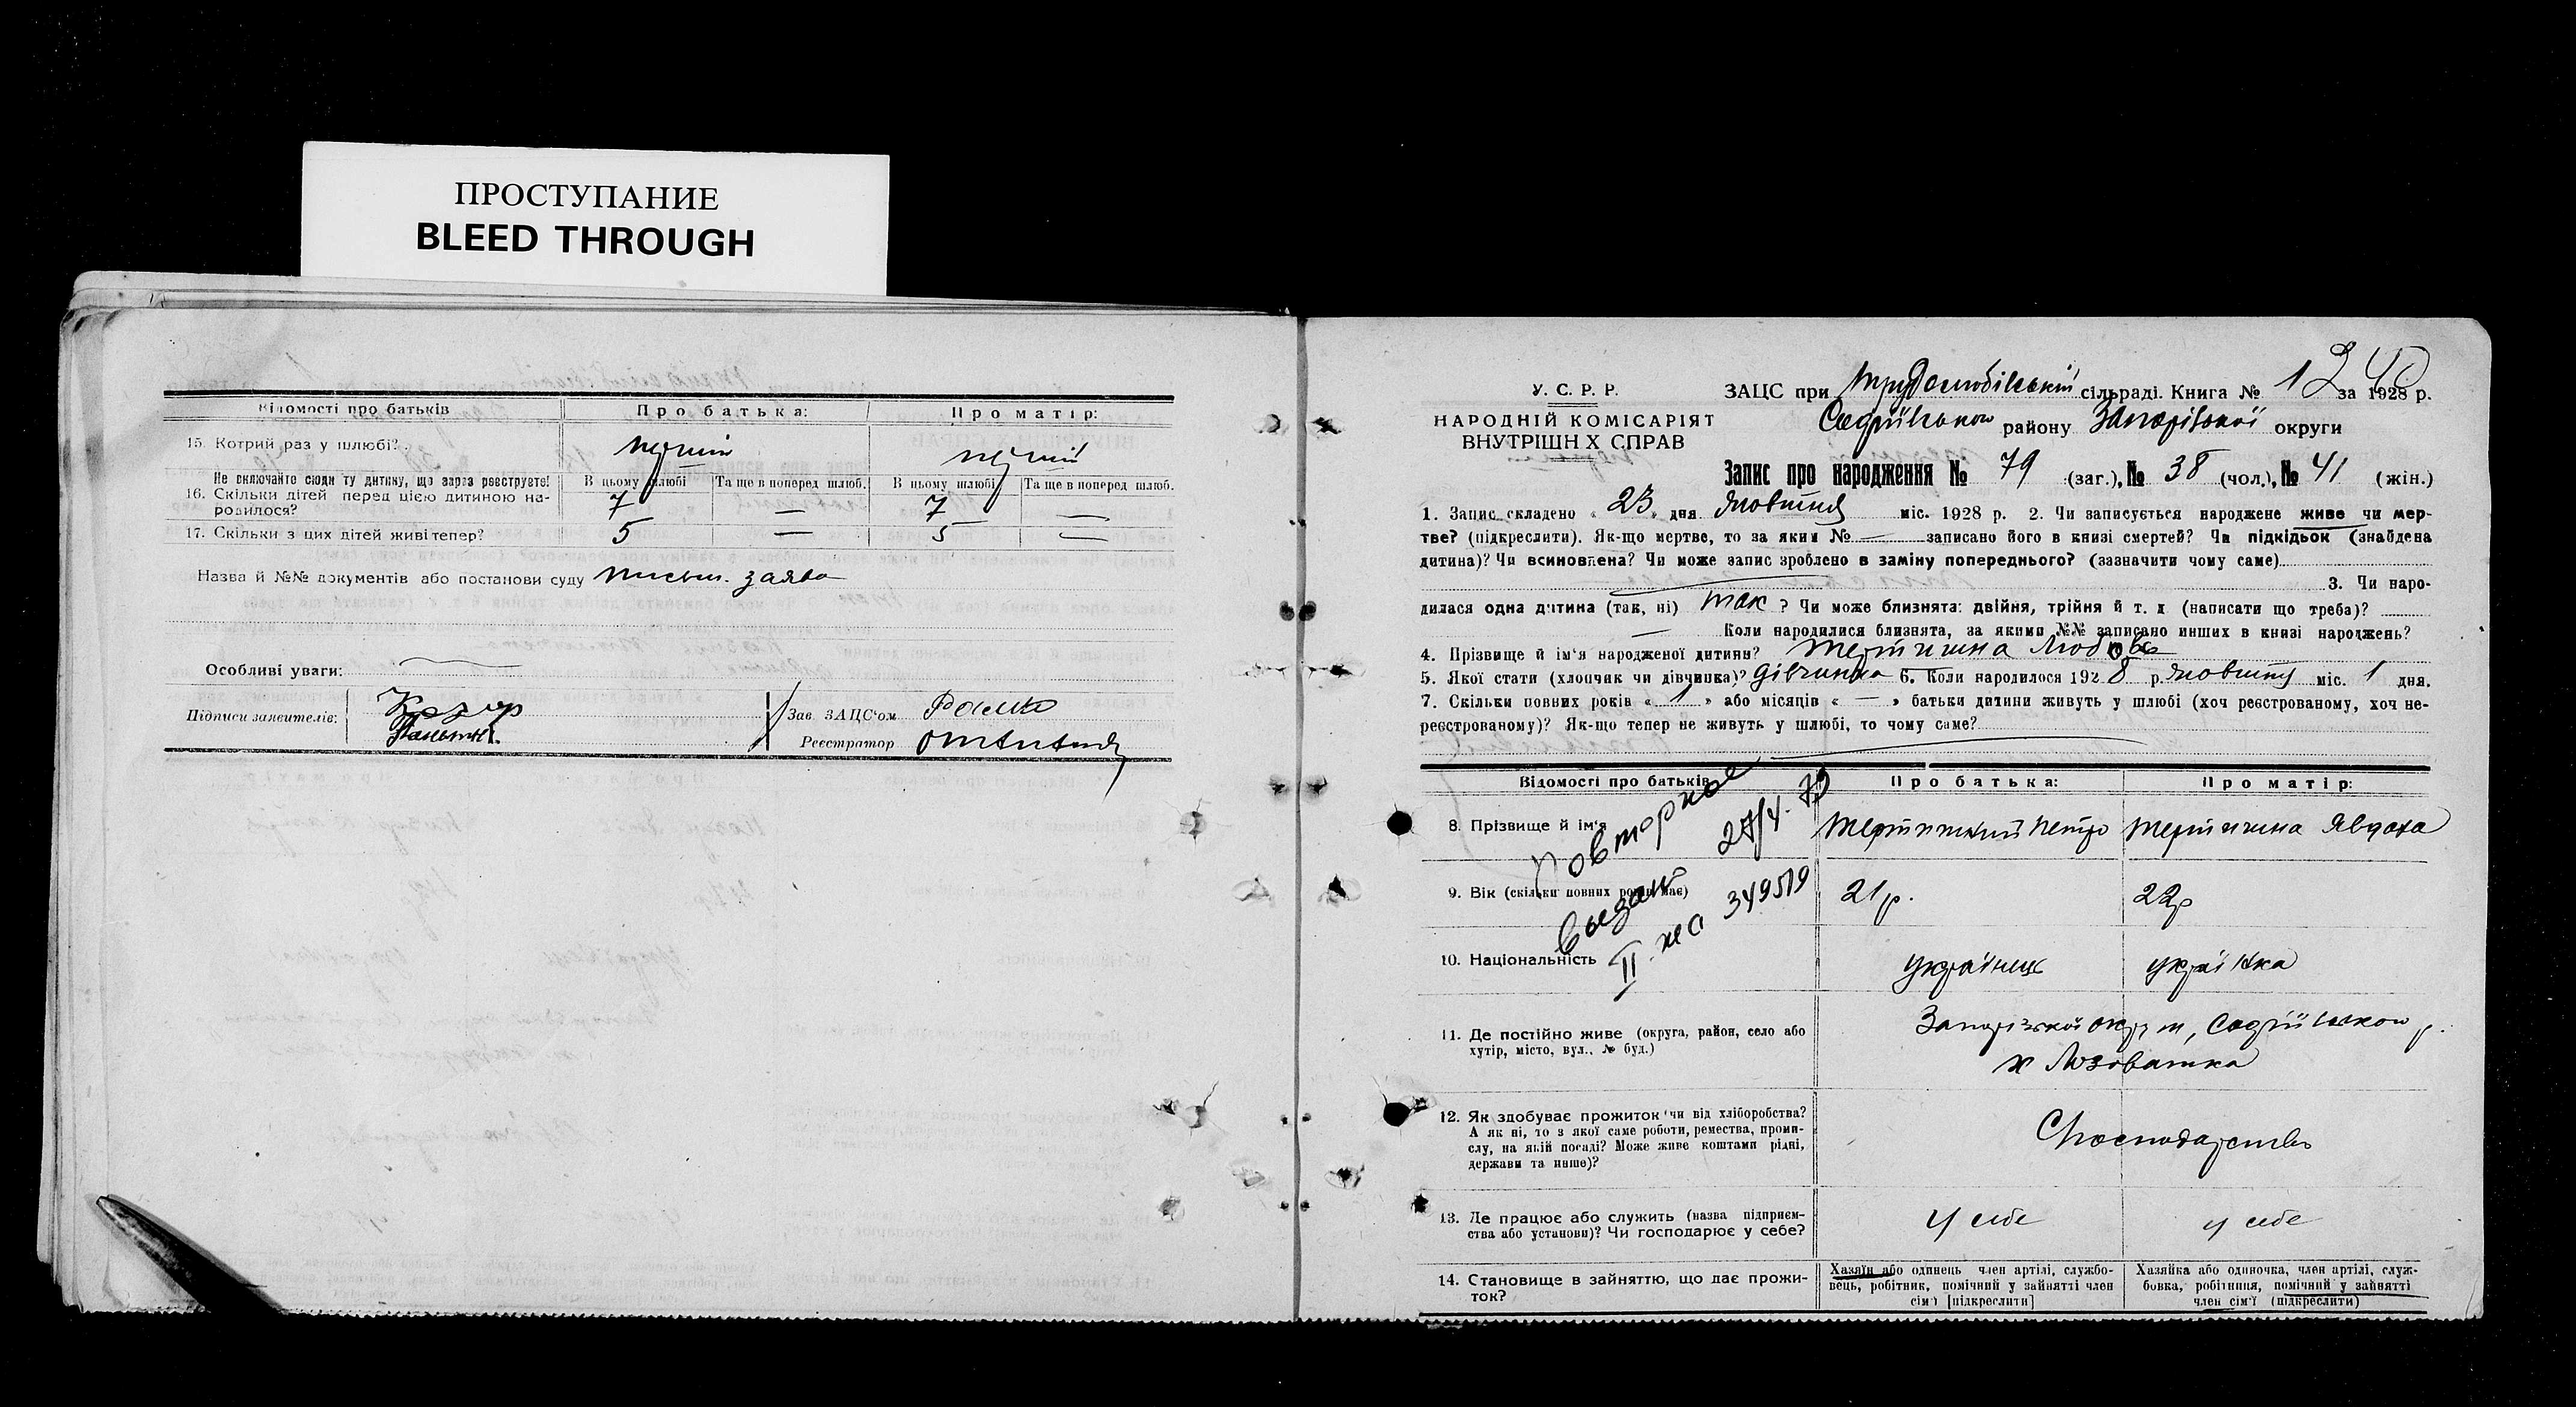 ПРОСТУПАНИЕ
BLEED THROUGH
Відомості про батьків Про батька: Про матір:
15. Котрий раз у шлюбі? перший перший
Не включайте сюди ту дитину, що зараз реєструєте! В цьому шлюбі Та ще в поперед шлюб. В цьому шлюбі Та ще в поперед шлюб.
16. Скільки дітей перед цією дитиною на-
родилося? 7 — 7 —
17. Скільки з цих дітей живі тепер? 5 — 5 —
Назва й №№ документів або постанови суду письм. заява
Особливі уваги:
Підписи заявителів: Козир
Зав. ЗАЦС'ом
Реєстратор
У. С. Р. Р.
НАРОДНІЙ КОМІСАРІЯТ
ВНУТРІШН Х СПРАВ
ЗАЦС при Трудолюбівській сільраді. Книга № 1 за 1928 р.
240
Софіївського району Запорізької округи
Запис про народження № 79 (заг.), № 38 (чол.), № 41 (жін.)
1. Запис складено « 23 » дня Жовтня міс. 1928 р. 2. Чи записується народжене живе чи мер-
тве? (підкреслити). Як-що мертве, то за яким № — записано його в книзі смертей? Чи підкідьок (знайдена
дитина)? Чи всиновлена? Чи може запис зроблено в заміну попереднього? (зазначити чому саме)
3. Чи наро-
дилася одна дитина (так, ні) так ? Чи може близнята: двійня, трійня й т. д (написати що треба)?
— Коли народилися близнята, за якими №№ записано инших в книзі народжень?
4. Прізвище й ім'я народженої дитини? Тертишна Любов
5. Якої стати (хлопчик чи дівчинка)? дівчинка 6. Коли народилося 192 8 р. жовтня міс. 1 дня.
7. Скільки повних років « 1 » або місяців « — » батьки дитини живуть у шлюбі (хоч реєстрованому, хоч не-
реєстрованому)? Як-що тепер не живуть у шлюбі, то чому саме?
Відомості про батьків Про батька: Про матір:
8. Прізвище й ім'я Тертишний Петро Тертишна Явдоха
Повторное
выдано 27/4. 73
II жс 349519
9. Вік (скільки повних років має) 21 р. 22 р
10. Національність українець українка
11. Де постійно живе (округа, район, село або
хутір, місто, вул., № буд.) Запорізької округи, Софіївського р.
х Лозоватка
12. Як здобуває прожиток чи від хліборобства?
А як ні, то з якої саме роботи, ремества, проми-
слу, на якій посаді? Може живе коштами рідні,
держави та инше)? С/господарство
13. Де працює або служить (назва підприєм-
ства або установи)? Чи господарює у себе? у себе у себе
14. Становище в зайняттю, що дає прожи-
ток?
Хазяїн або одинець член артілі, службо-
вець, робітник, помічний у зайнятті член
сім'ї [підкреслити]
Хазяйка або одиночка, член артілі, служ-
бовка, робітниця, помічний у зайнятті
член сім'ї (підкреслити)